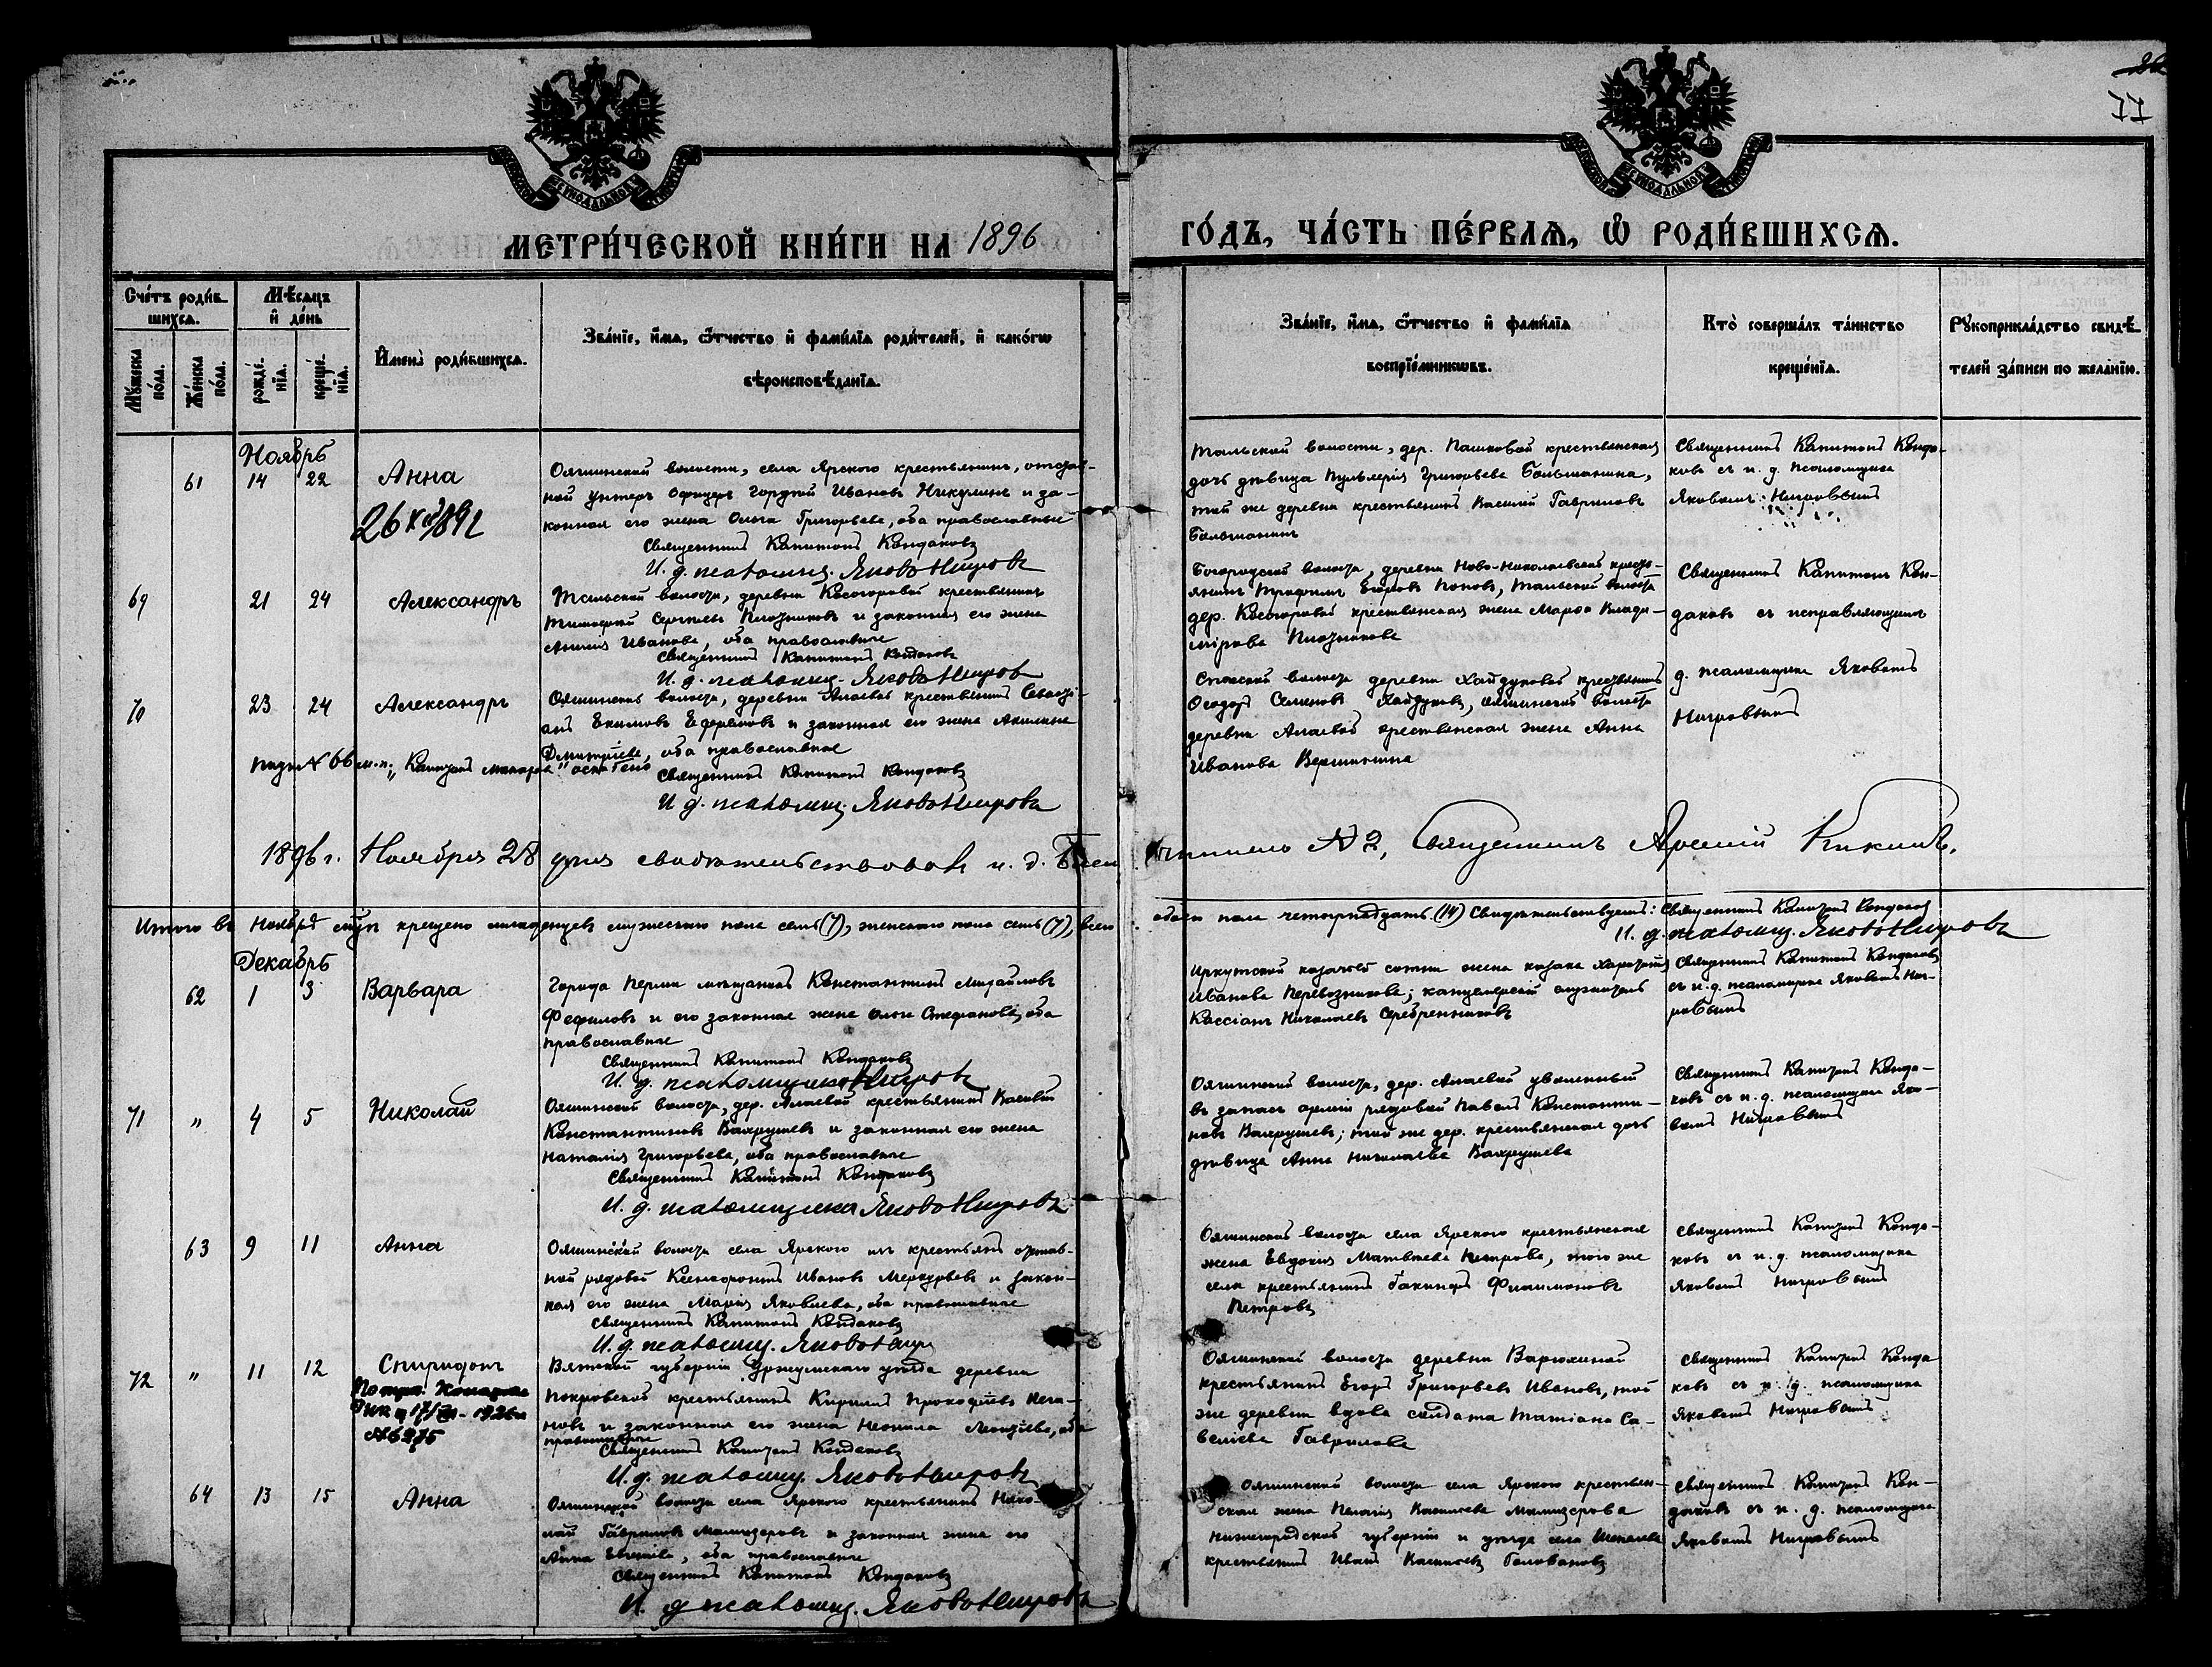 МЕТРИ́ЧЕСКОЙ КНИ́ГИ НА 1896
ГО́ДЪ, ЧА́СТЬ ПЕ́РВАѦ, Ѡ РОДИ́ВШИХСѦ.
Счетъ роди́в
шихсѧ.
Мѣ́сѧцъ
и де́нь
Мꙋжеска
по́ла.
Же́нска
по́ла.
рожде́-
нїѧ.
креще́-
нїѧ.
Имена̀ роди́вшихсѧ.
Зва́нїе, и́мѧ, о́тчество и фами́лїѧ роди́телей, и како́гѡ
вѣроисповѣ́данїѧ.
Зва́нїе, и́мѧ, о́тчество и фами́лїѧ
воспрїе́мникѡвъ.
Кто̀ соверша́лъ та́инство
креще́нїѧ.
Рꙋкоприкла́дство свидѣ́
телей за́писи по жела́нїю.
Ноябрь
61 14 22 Анна
Ояшинской волости, села Ярского крестьянинъ, отстав-
ной унтеръ офицеръ Гордей Ивановъ Никулинъ и за-
конная его жена Ольга Григорьева, оба православные
Священникъ Капитонъ Кондаковъ
И. д. псаломщ. Яковъ Нигровъ
дочь девица Григорьева
той же деревни крестьянинъ Василій Гавриловъ
Священникъ Капитонъ Конда-
ковъ съ и. д. псаломщика
Яковомъ Нигровымъ
69 21 24 Александръ
Тальской волости, деревни Косогоровой крестьянинъ
Тимофей Сергѣевъ Плотниковъ и законная его жена
Ивановна, оба православные
Священникъ Капитонъ Кондаковъ
И. д. псаломщ. Яковъ Нигровъ
Богородской волости, деревни Ново-Николаевской кресть-
янинъ Трофимъ Егоровъ Поповъ, Тальской волости
дер. Косогоровой крестьянская жена Марѳа Влади-
мірова Плотникова
Священникъ Капитонъ Кон-
даковъ съ исправляющимъ
д. псаломщика Яковомъ
Нигровымъ
70 23 24 Александръ
Ояшинской волости, деревни Алаевой крестьянинъ Севасті-
анъ Екимовъ Ефремовъ и законная его жена Акилина
Дмитріева, оба православные
Священникъ Капитонъ Кондаковъ
И. д. псаломщ. Яковъ Нигровъ
Спасской волости деревни Хайдуковой крестьянинъ
Ѳеодоръ Семеновъ Хайдуковъ, Ояшинской волости
деревни Алаевой крестьянская жена Анна
Иванова Вершинина
1896 г. Ноября 28 дня свидѣтельствовалъ и. д. Благочиннаго № 2, Священникъ Арсеній Кикинъ.
Итого въ Ноябрѣ м-цѣ крещено младенцевъ мужескаго пола семь (7), женскаго пола семь (7), всего обоего пола четырнадцать (14) Свидѣтельствуетъ: Священникъ Капитонъ Кондаковъ
И. д. псаломщ. Яковъ Нигровъ
Декабрь
62 1 3 Варвара
Города Перми мѣщанинъ Константинъ Михайловъ
Федиловъ и его законная жена Ольга Стефанова, оба
православные
Священникъ Капитонъ Кондаковъ
И. д. псаломщика Нигровъ
Иркутской казачьей сотни жена казака
Иванова Перевозникова; канцелярскій служитель
Кассіанъ Николаевъ Серебренниковъ
Священникъ Капитонъ Кондаковъ
съ и. д. псаломщика Яковомъ Ниг-
ровымъ
71 " 4 5 Николай
Ояшинской волости, дер. Алаевой крестьянинъ Василій
Константиновъ Вахрушевъ и законная его жена
Наталія Григорьева, оба православные
Священникъ Капитонъ Кондаковъ
И. д. псаломщика Яковъ Нигровъ
Ояшинской волости, дер. Алаевой уволенный
въ запасъ арміи рядовой Павелъ Константи-
новъ Вахрушевъ; той же дер. крестьянская дочь
дѣвица Анна Николаева Вахрушева
Священникъ Капитонъ Конда-
ковъ съ и. д. псаломщика Яко-
вомъ Нигровымъ
63 9 11 Анна
Ояшинской волости села Ярского изъ крестьянъ отстав-
ной рядовой Ксенофонтъ Ивановъ Меркурьевъ и закон-
ная его жена Марія Яковлева, оба православные
Священникъ Капитонъ Кондаковъ
И. д. псаломщ. Яковъ Нигр
Ояшинской волости села Ярского крестьянская
жена Евдокія Матвѣева Петрова, того же
села крестьянинъ Іакинфъ Филимоновъ
Петровъ
Священникъ Капитонъ Конда-
ковъ съ и. д. псаломщика
Яковомъ Нигровымъ
72 " 11 12 Спиридонъ
Вятской губерніи Уржумскаго уѣзда деревни
Покровской крестьянинъ Кириллъ Прокопіевъ
и законная его жена Неонила Леонтіева, оба
православные
Священникъ Капитонъ Кондаковъ
И. д. псаломщ. Яковъ Нигровъ
Ояшинской волости деревни Варюхиной
крестьянинъ Егоръ Григорьевъ Ивановъ, той
же деревни вдова солдата Татіана Са-
веліева Гаврилова
Священникъ Капитонъ Конда
ковъ съ и. д. псаломщика
Яковомъ Нигровымъ
64 13 15 Анна
Ояшинской волости села Ярского крестьянинъ Нико-
лай Гавриловъ и законная жена его
Анна, оба православные
Священникъ Капитонъ Кондаковъ
И. д. псаломщ. Яковъ Нигровъ
Ояшинской волости села Ярского крестьян-
ская жена
Нижегородской губерніи и уѣзда села
крестьянинъ Иванъ Головановъ
Священникъ Капитонъ Кон-
даковъ съ и. д. псаломщика
Яковомъ Нигровымъ